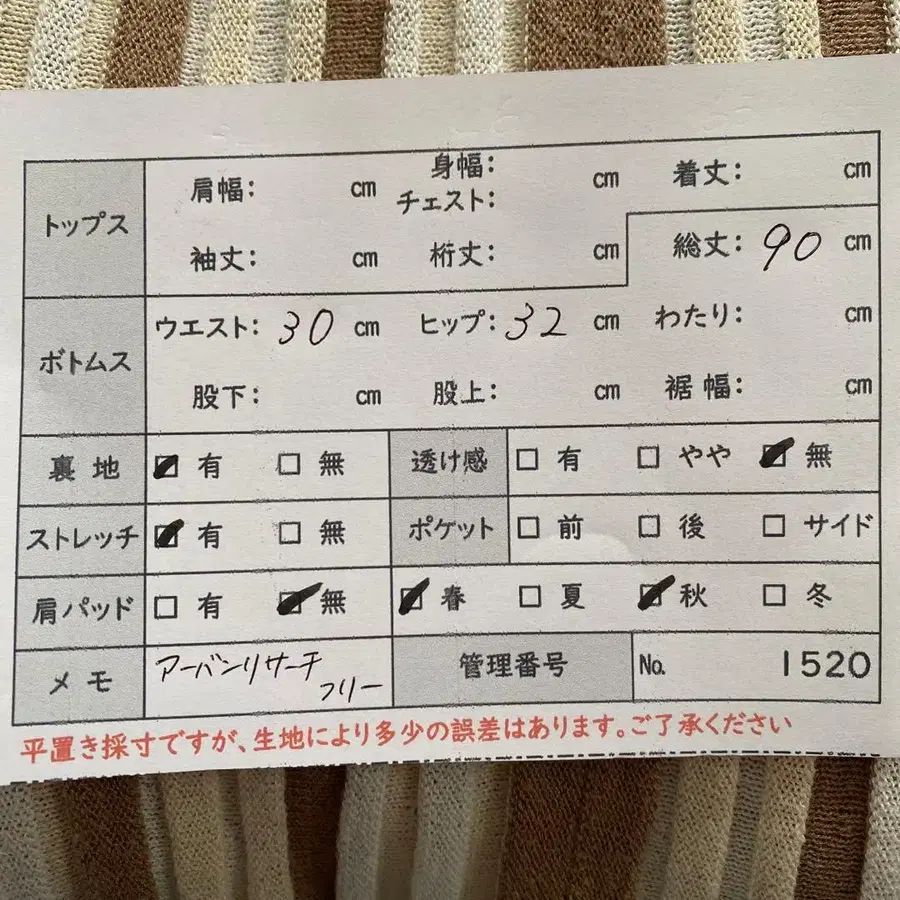 トップス
肩幅: cm 身幅: チェスト: cm 着丈: cm
袖丈: cm 桁丈: cm 総丈: 90 cm
ボトムス
ウエスト: 30 cm ヒップ: 32 cm わたり: cm
股下: cm 股上: cm 裾幅: cm
裏地 ☑ 有 □ 無 透け感 □ 有 □ やや ☑ 無
ストレッチ ☑ 有 □ 無 ポケット □ 前 □ 後 □ サイド
肩パッド □ 有 ☑ 無 ☑ 春 □ 夏 ☑ 秋 □ 冬
メモ アーバンリサーチ フリー 管理番号 No. 1520
平置き採寸ですが、生地により多少の誤差はあります。ご了承ください